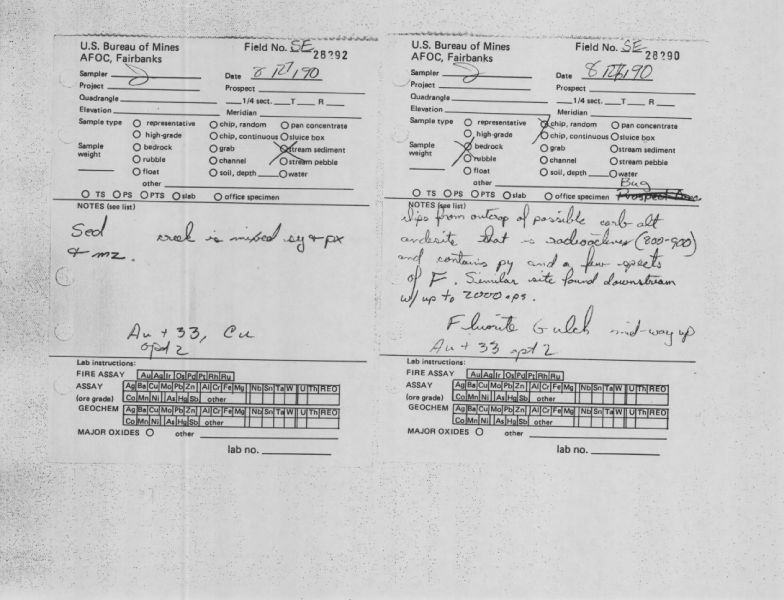 U.S. Bureau of Mines
AFOC, Fairbanks
Field No. SE 28292
Sampler
Date 8/27/90
Project
Prospect
Quadrangle
1/4 sect. T R
Elevation
Meridian
Sample type
representative
chip, random
pan concentrate
high-grade
chip, continuous
sluice box
Sample weight
bedrock
grab
stream sediment
rubble
channel
stream pebble
float
soil, depth
water
other
TS PS PTS slab office specimen
NOTES (see list)
Sed creek is mixed sy + px
+ mz.
Au + 33, Cu
opt 2
Lab instructions:
FIRE ASSAY Au Ag Ir Os Pd Pt Rh Ru
ASSAY Ag Ba Cu Mo Pb Zn Al Cr Fe Mg Nb Sn Ta W U Th REO
(ore grade) Co Mn Ni As Hg Sb other
GEOCHEM Ag Ba Cu Mo Pb Zn Al Cr Fe Mg Nb Sn Ta W U Th REO
Co Mn Ni As Hg Sb other
MAJOR OXIDES other
lab no.
U.S. Bureau of Mines
AFOC, Fairbanks
Field No. SE 28290
Sampler
Date 8/26/90
Project
Prospect
Quadrangle
1/4 sect. T R
Elevation
Meridian
Sample type
representative
chip, random
pan concentrate
high-grade
chip, continuous
sluice box
Sample weight
bedrock
grab
stream sediment
rubble
channel
stream pebble
float
soil, depth
water
other
Bug
TS PS PTS slab office specimen
NOTES (see list)
chips from outcrop of possible carb alt
andesite that is radioactive (800-900)
and contains py and a few specks
of F. Similar site found downstream
w/ up to 2000 cps.
Fluorite Gulch mid-way up
Au + 33 opt 2
Lab instructions:
FIRE ASSAY Au Ag Ir Os Pd Pt Rh Ru
ASSAY Ag Ba Cu Mo Pb Zn Al Cr Fe Mg Nb Sn Ta W U Th REO
(ore grade) Co Mn Ni As Hg Sb other
GEOCHEM Ag Ba Cu Mo Pb Zn Al Cr Fe Mg Nb Sn Ta W U Th REO
Co Mn Ni As Hg Sb other
MAJOR OXIDES other
lab no.